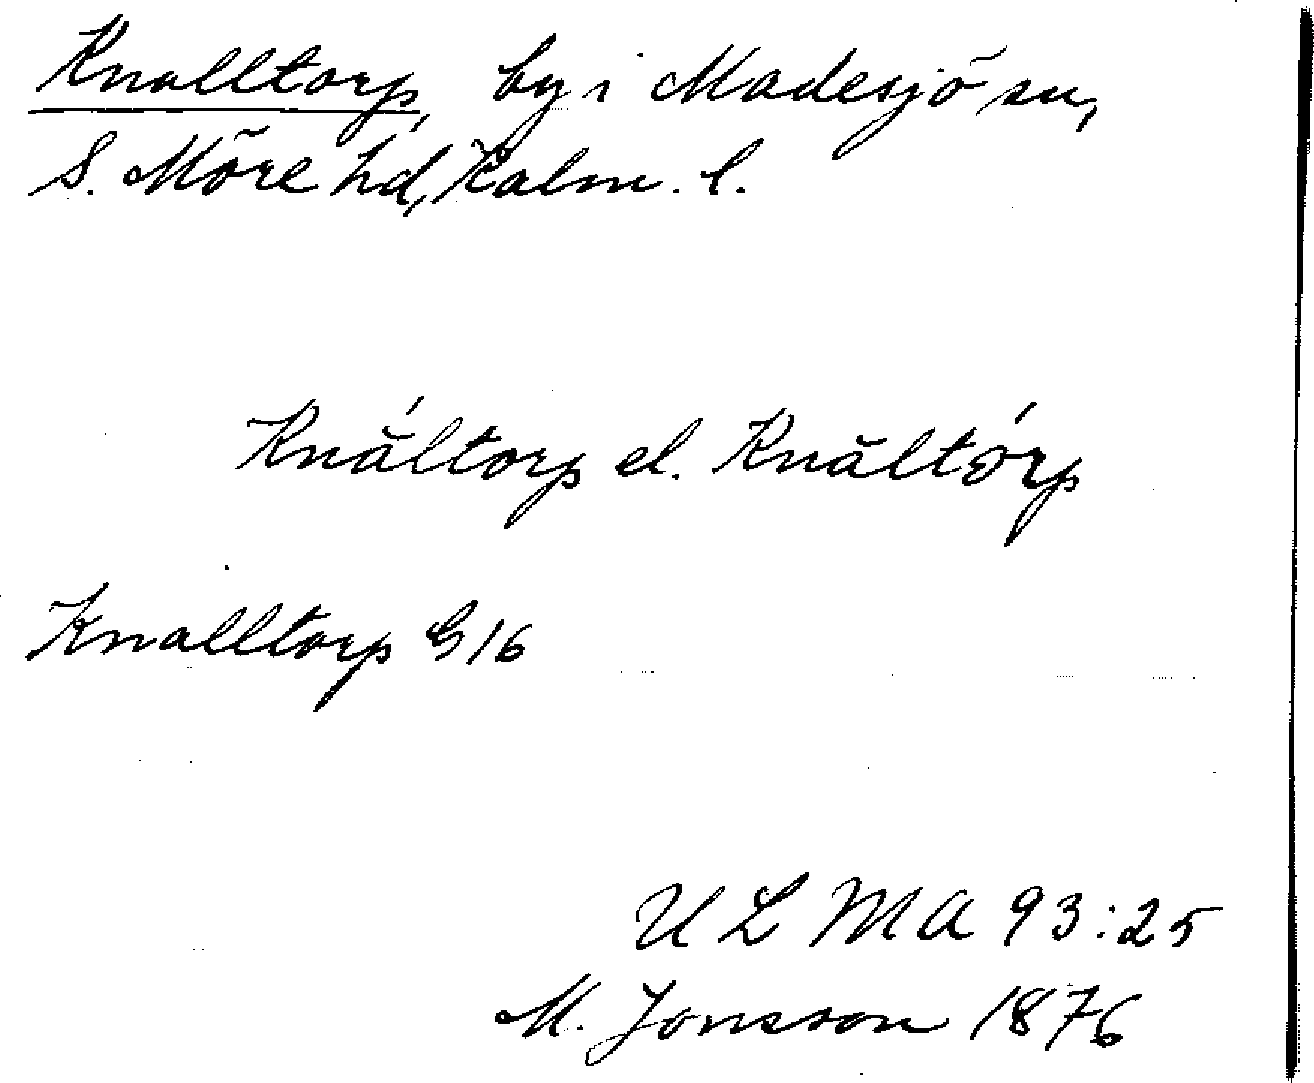 Knalltorp, by i Madesjö sn,
S. Möre hd, Kalm. l.
Knắltorp el. Knăltórp
Knalltorp G 16
ULMA 93:25
M. Jonsson 1876